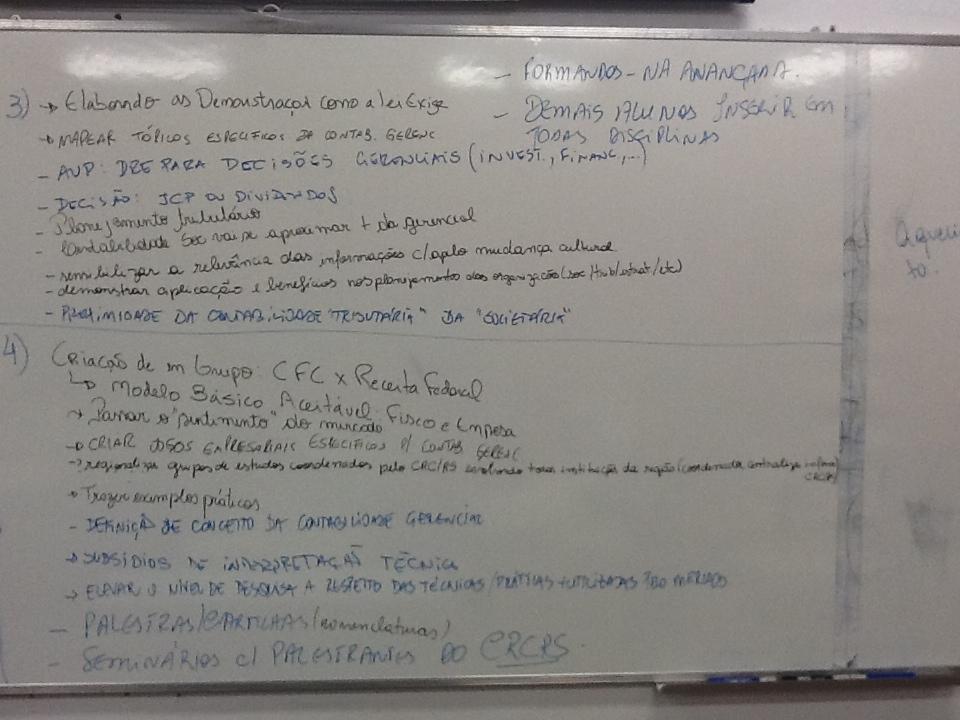 - FORMANDOS - NA AVANÇADA.
- DEMAIS ALUNOS INSERIR EM
TODAS DISCIPLINAS
3) → Elaborando as Demonstraçoes como a lei Exige
→ MAPEAR TÓPICOS ESPECÍFICOS DA CONTAB. GERENC
- AVP: DRE PARA DECISÕES GERENCIAIS (INVEST., FINANC,...)
- DECISÃO: JCP OU DIVIDENDOS
- Planejamento tributário
- Contabilidade Soc vai se aproximar + da gerencial
- sensibilizar a relevância das informações c/ apelo mudança cultural
- demonstrar aplicação e benefícios nos planejamento das organização (soc/trib/estrat/etc)
- PROXIMIDADE DA CONTABILIDADE "TRIBUTÁRIA" DA "SOCIETÁRIA"
4) Criação de um Grupo: CFC x Receita Federal
↳ Modelo Básico Aceitável: Fisco e Empesa
→ Passar o "sentimento" do mercado
→ CRIAR JOGOS EMPRESARIAIS ESPECÍFICOS P/ CONTAB GERENC
→ regionalizar grupos de estudos coordenados pelo CRC/RS envolvendo todas instituição da região (coordenada centraliza
CRCRS)
→ Trazer exemplos práticos
- DEFINIÇÃO DE CONCEITO DA CONTABILIDADE GERENCIAL
→ SUBSÍDIOS DE INTERPRETAÇÃO TÉCNICA
→ ELEVAR O NÍVEL DE PESQUISA A RESPEITO DAS TÉCNICAS/PRÁTICAS + UTILIZADAS MERCADO
- PALESTRAS/CARTILHAS (nomenclaturas)
- SEMINÁRIOS c/ PALESTRANTES DO CRCRS.